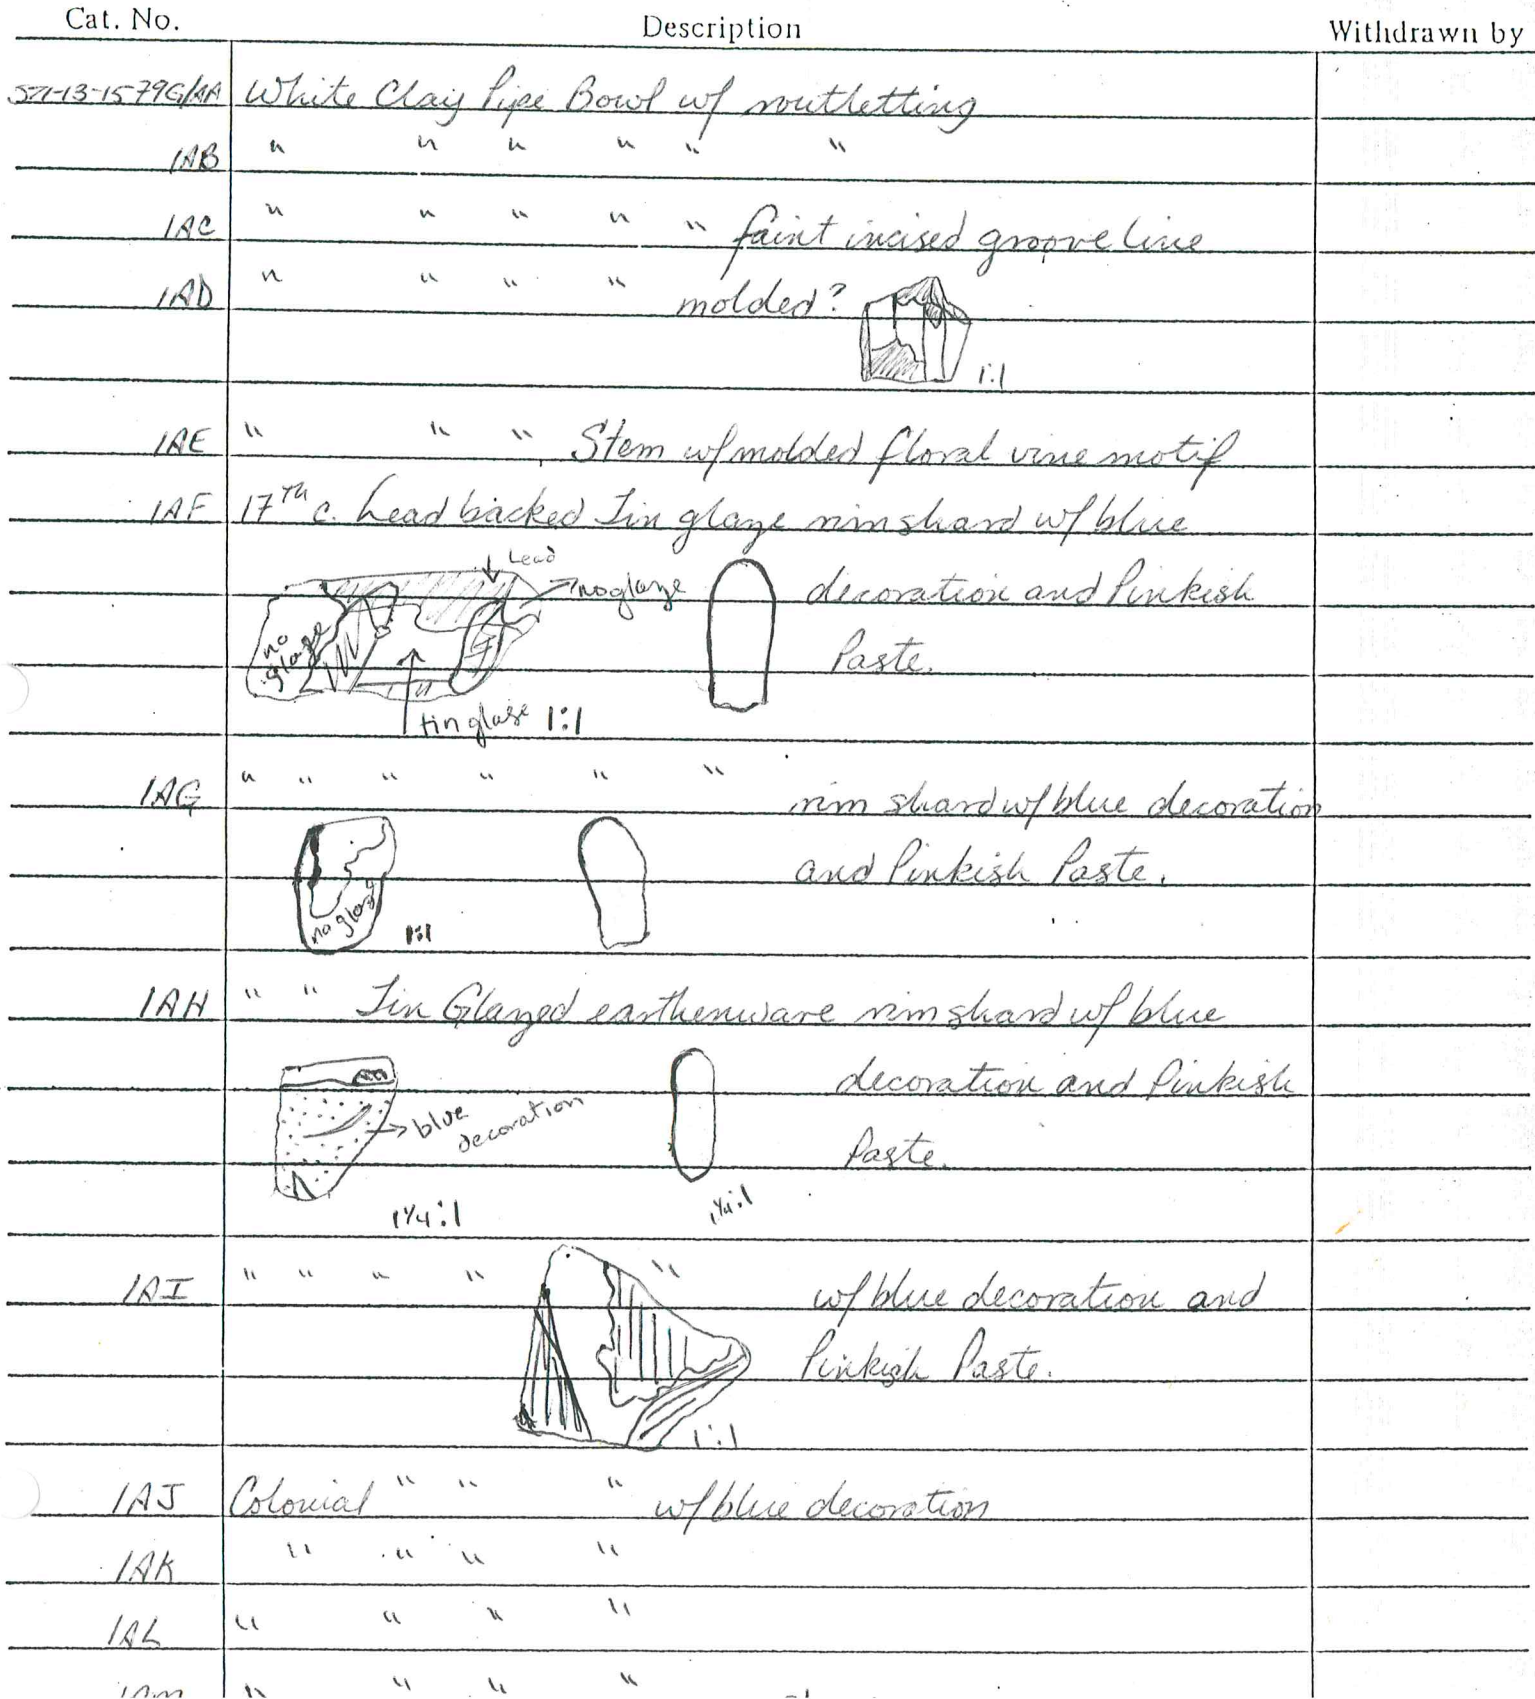 Cat. No. Description Withdrawn by
S71-13-1579G/AA White Clay Pipe Bowl w/ routletting
1AB " " " " " "
1AC " " " " " faint incised groove line
1AD " " " " molded?
1:1
1AE " " " Stem w/ molded floral vine motif
1AF 17th c. Lead backed Tin glaze rim shard w/ blue
Lead
no glaze decoration and Pinkish
no
glaze Paste.
tin glase 1:1
1AG " " " " " "
rim shard w/ blue decoration
and Pinkish Paste.
no glaze 1:1
1AH " " Tin Glazed earthenware rim shard w/ blue
decoration and Pinkish
blue
decoration
Paste.
1 1/4:1 1 1/4:1
1AI " " " " " w/ blue decoration and
Pinkish Paste.
1:1
1AJ Colonial " " " w/ blue decoration
1AK " " " "
1AL " " " "
1AM " " " "